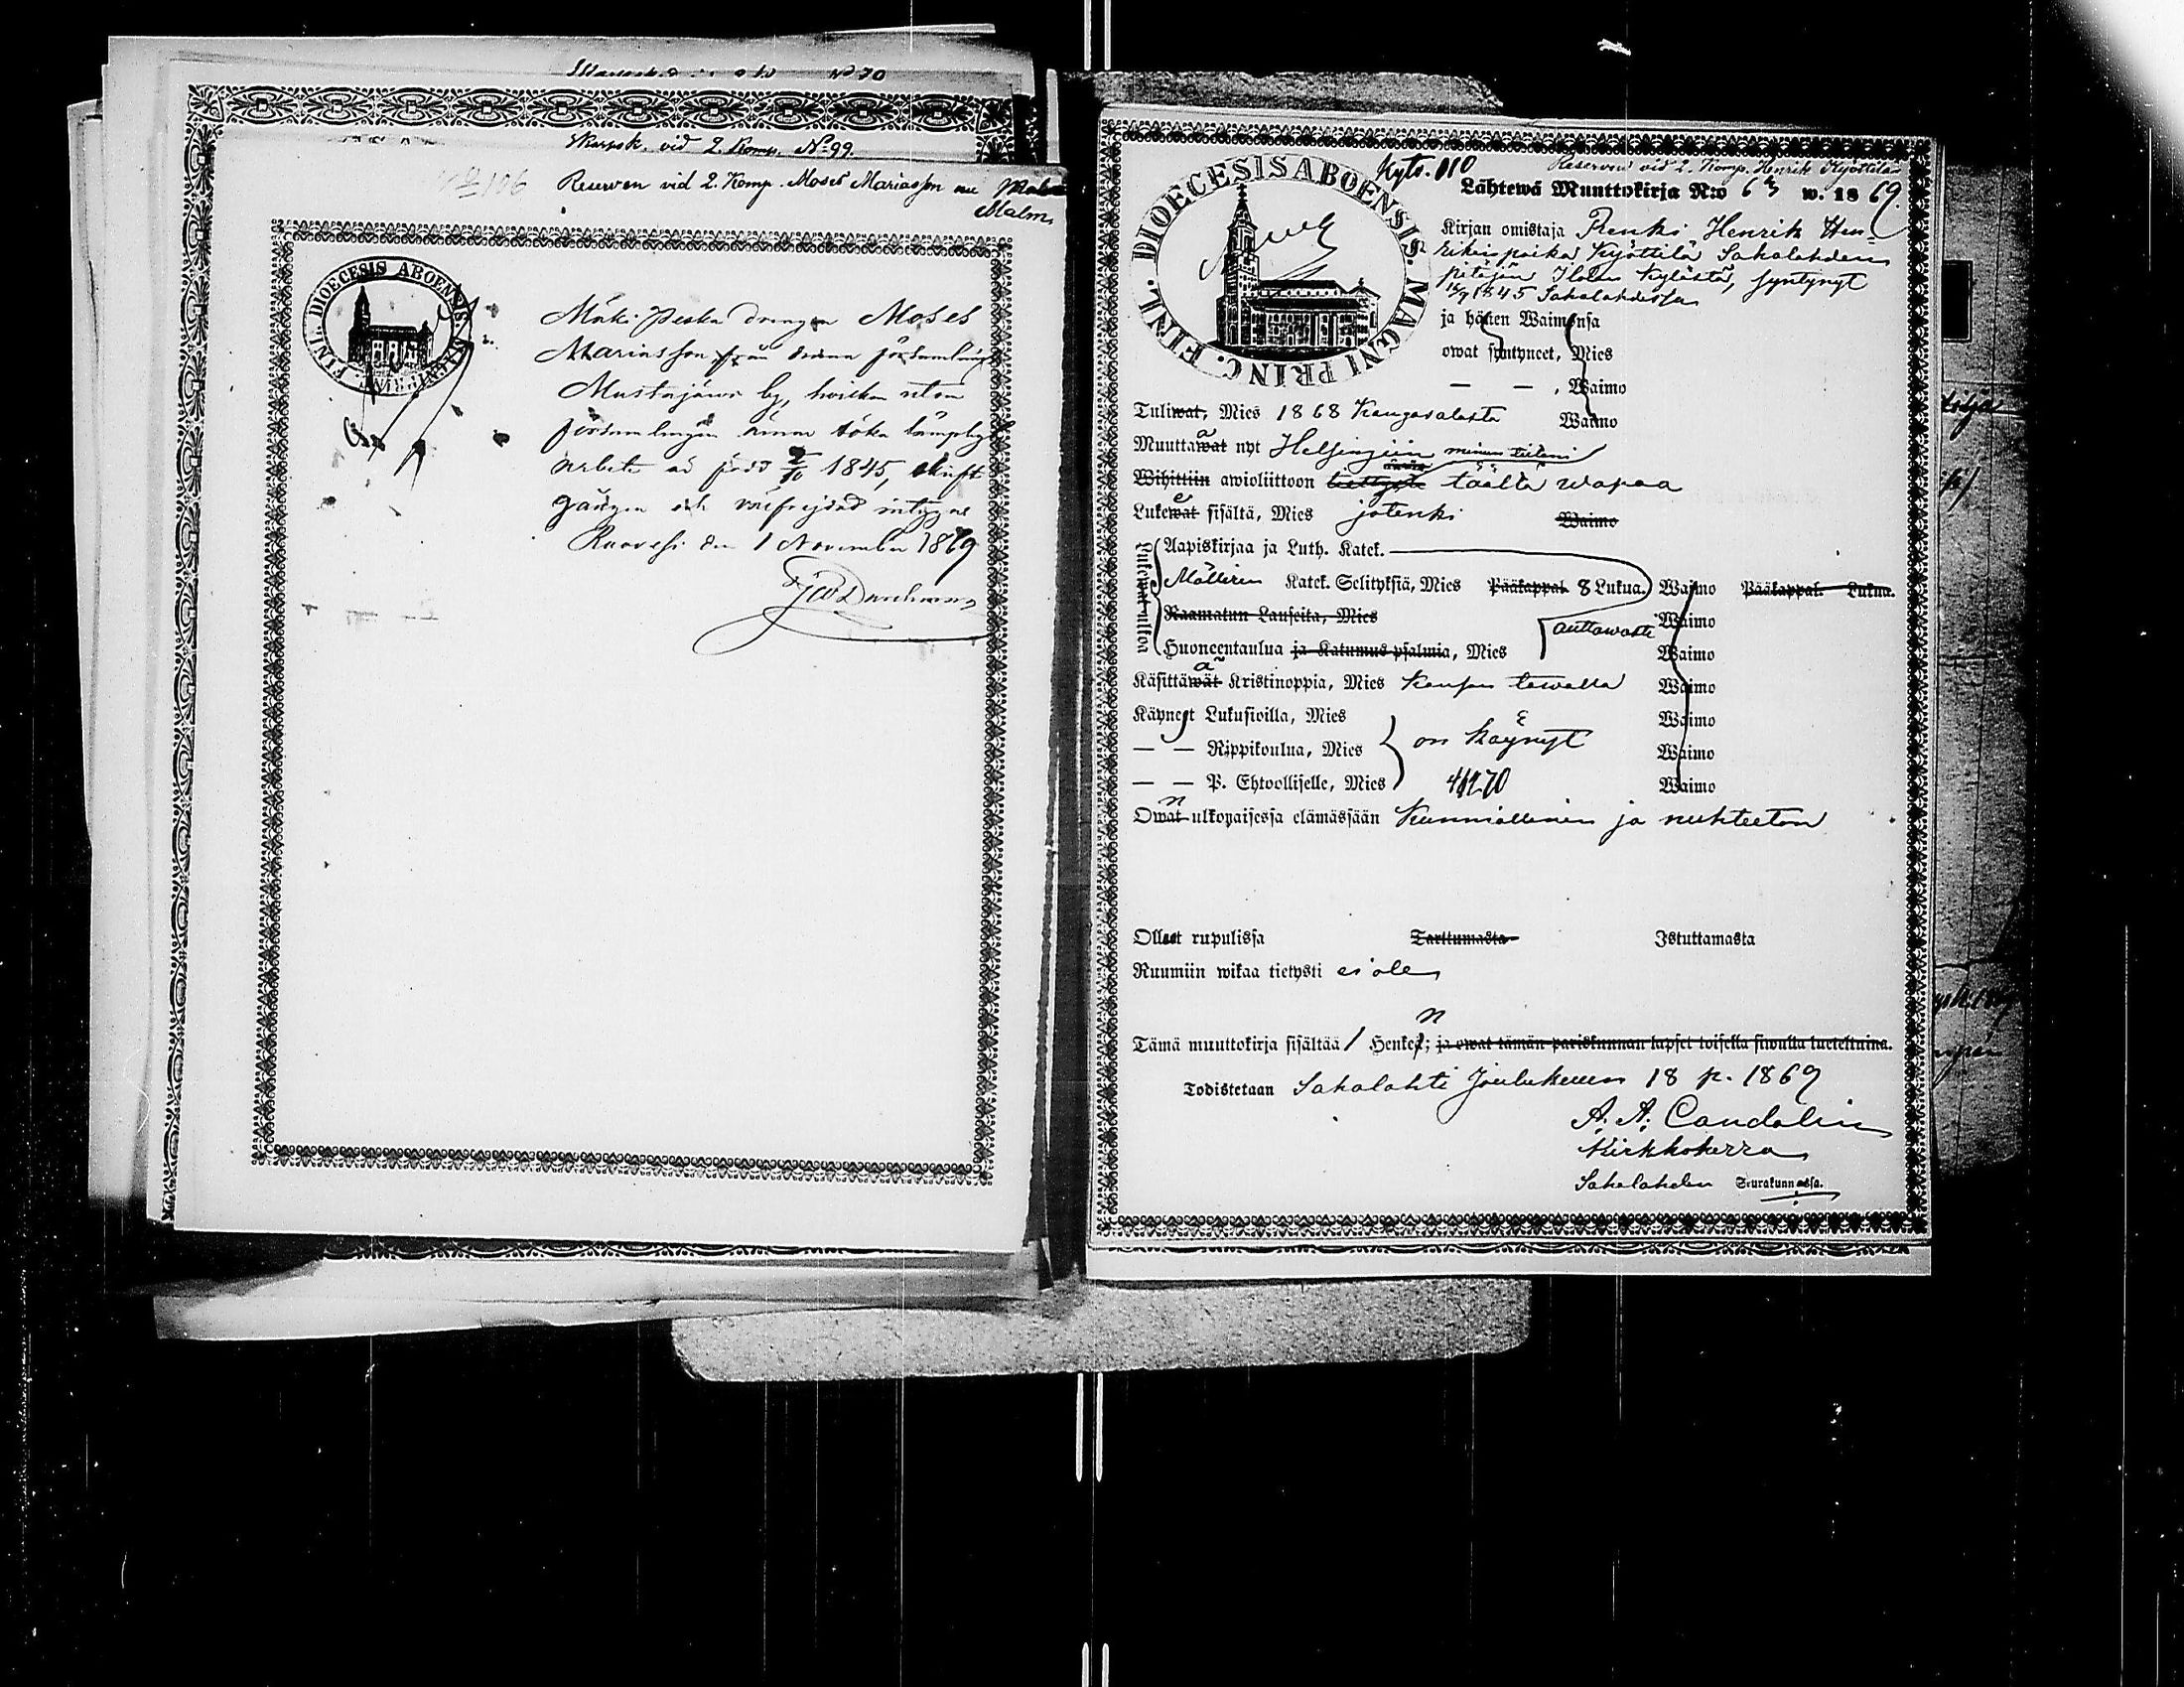 Nº 70
Skarpsk. vid 2. Komp. Nº 99.
Nº 106 Reserven vid 2. Komp. Moses Mariasson nu
Malm
DIOECESIS ABOENSIS. MAGNI PRINC. FINL.
Mäki Peska drängen Moses
Mariasson från denna församlings
Mustajärvi by, hvilken utom
församlingen ärnar söka lämpligt
arbete är född 2/10 1845, skrift
gången och välfrejdad intygar
Ruovesi den 1 November 1869
Kyts. 110
Reserven vid 2. Komp. Henrik Kyöttilä
DIOECESIS ABOENSIS. MAGNI PRINC. FINL.
Lähtewä Muuttokirja N:o 63 w. 1869.
Kirjan omistaja Renki Henrik Hen-
rikinpoika Kyöttilä Sahalahden
pitäjän Ilolan kylästä, syntynyt
1845 Sahalahdessa
ja hänen Waimonsa
owat syntyneet, Mies
— — , Waimo
Tuliwat, Mies 1868 Kangasalasta Waimo
Muuttawat nyt Helsingiin
Wihittiin awioliittoon täältä wapaa
Lukewat sisältä, Mies jotenki Waimo
Lukewat ulkoa
Aapiskirjaa ja Luth. Katek.
Möllerin Katek. Selityksiä, Mies Pääkappal. 8 Lukua. Waimo Pääkappal. Lukua.
Raamatun Lauseita, Mies auttawasti Waimo
Huoneentaulua ja Katumus psalmia, Mies Waimo
Käsittäwät Kristinoppia, Mies kansan tawalla Waimo
Käyneet Lukusioilla, Mies Waimo
— — Rippikoulua, Mies on käynyt Waimo
— — P. Ehtoolliselle, Mies Waimo
Owat ulkopaisessa elämässään kunniallinen ja nuhteeton
Olleet rupulissa Tarttumasta Istuttamasta
Ruumiin wikaa tietysti ei ole
Tämä muuttokirja sisältää 1 Henken; ja owat tämän pariskunnan lapset toisella siwulla lueteltuina.
Todistetaan Sahalahti Joulukuun 18 p. 1869
A. A. Candolin
Kirkkoherra
Sahalahden Seurakunnassa.